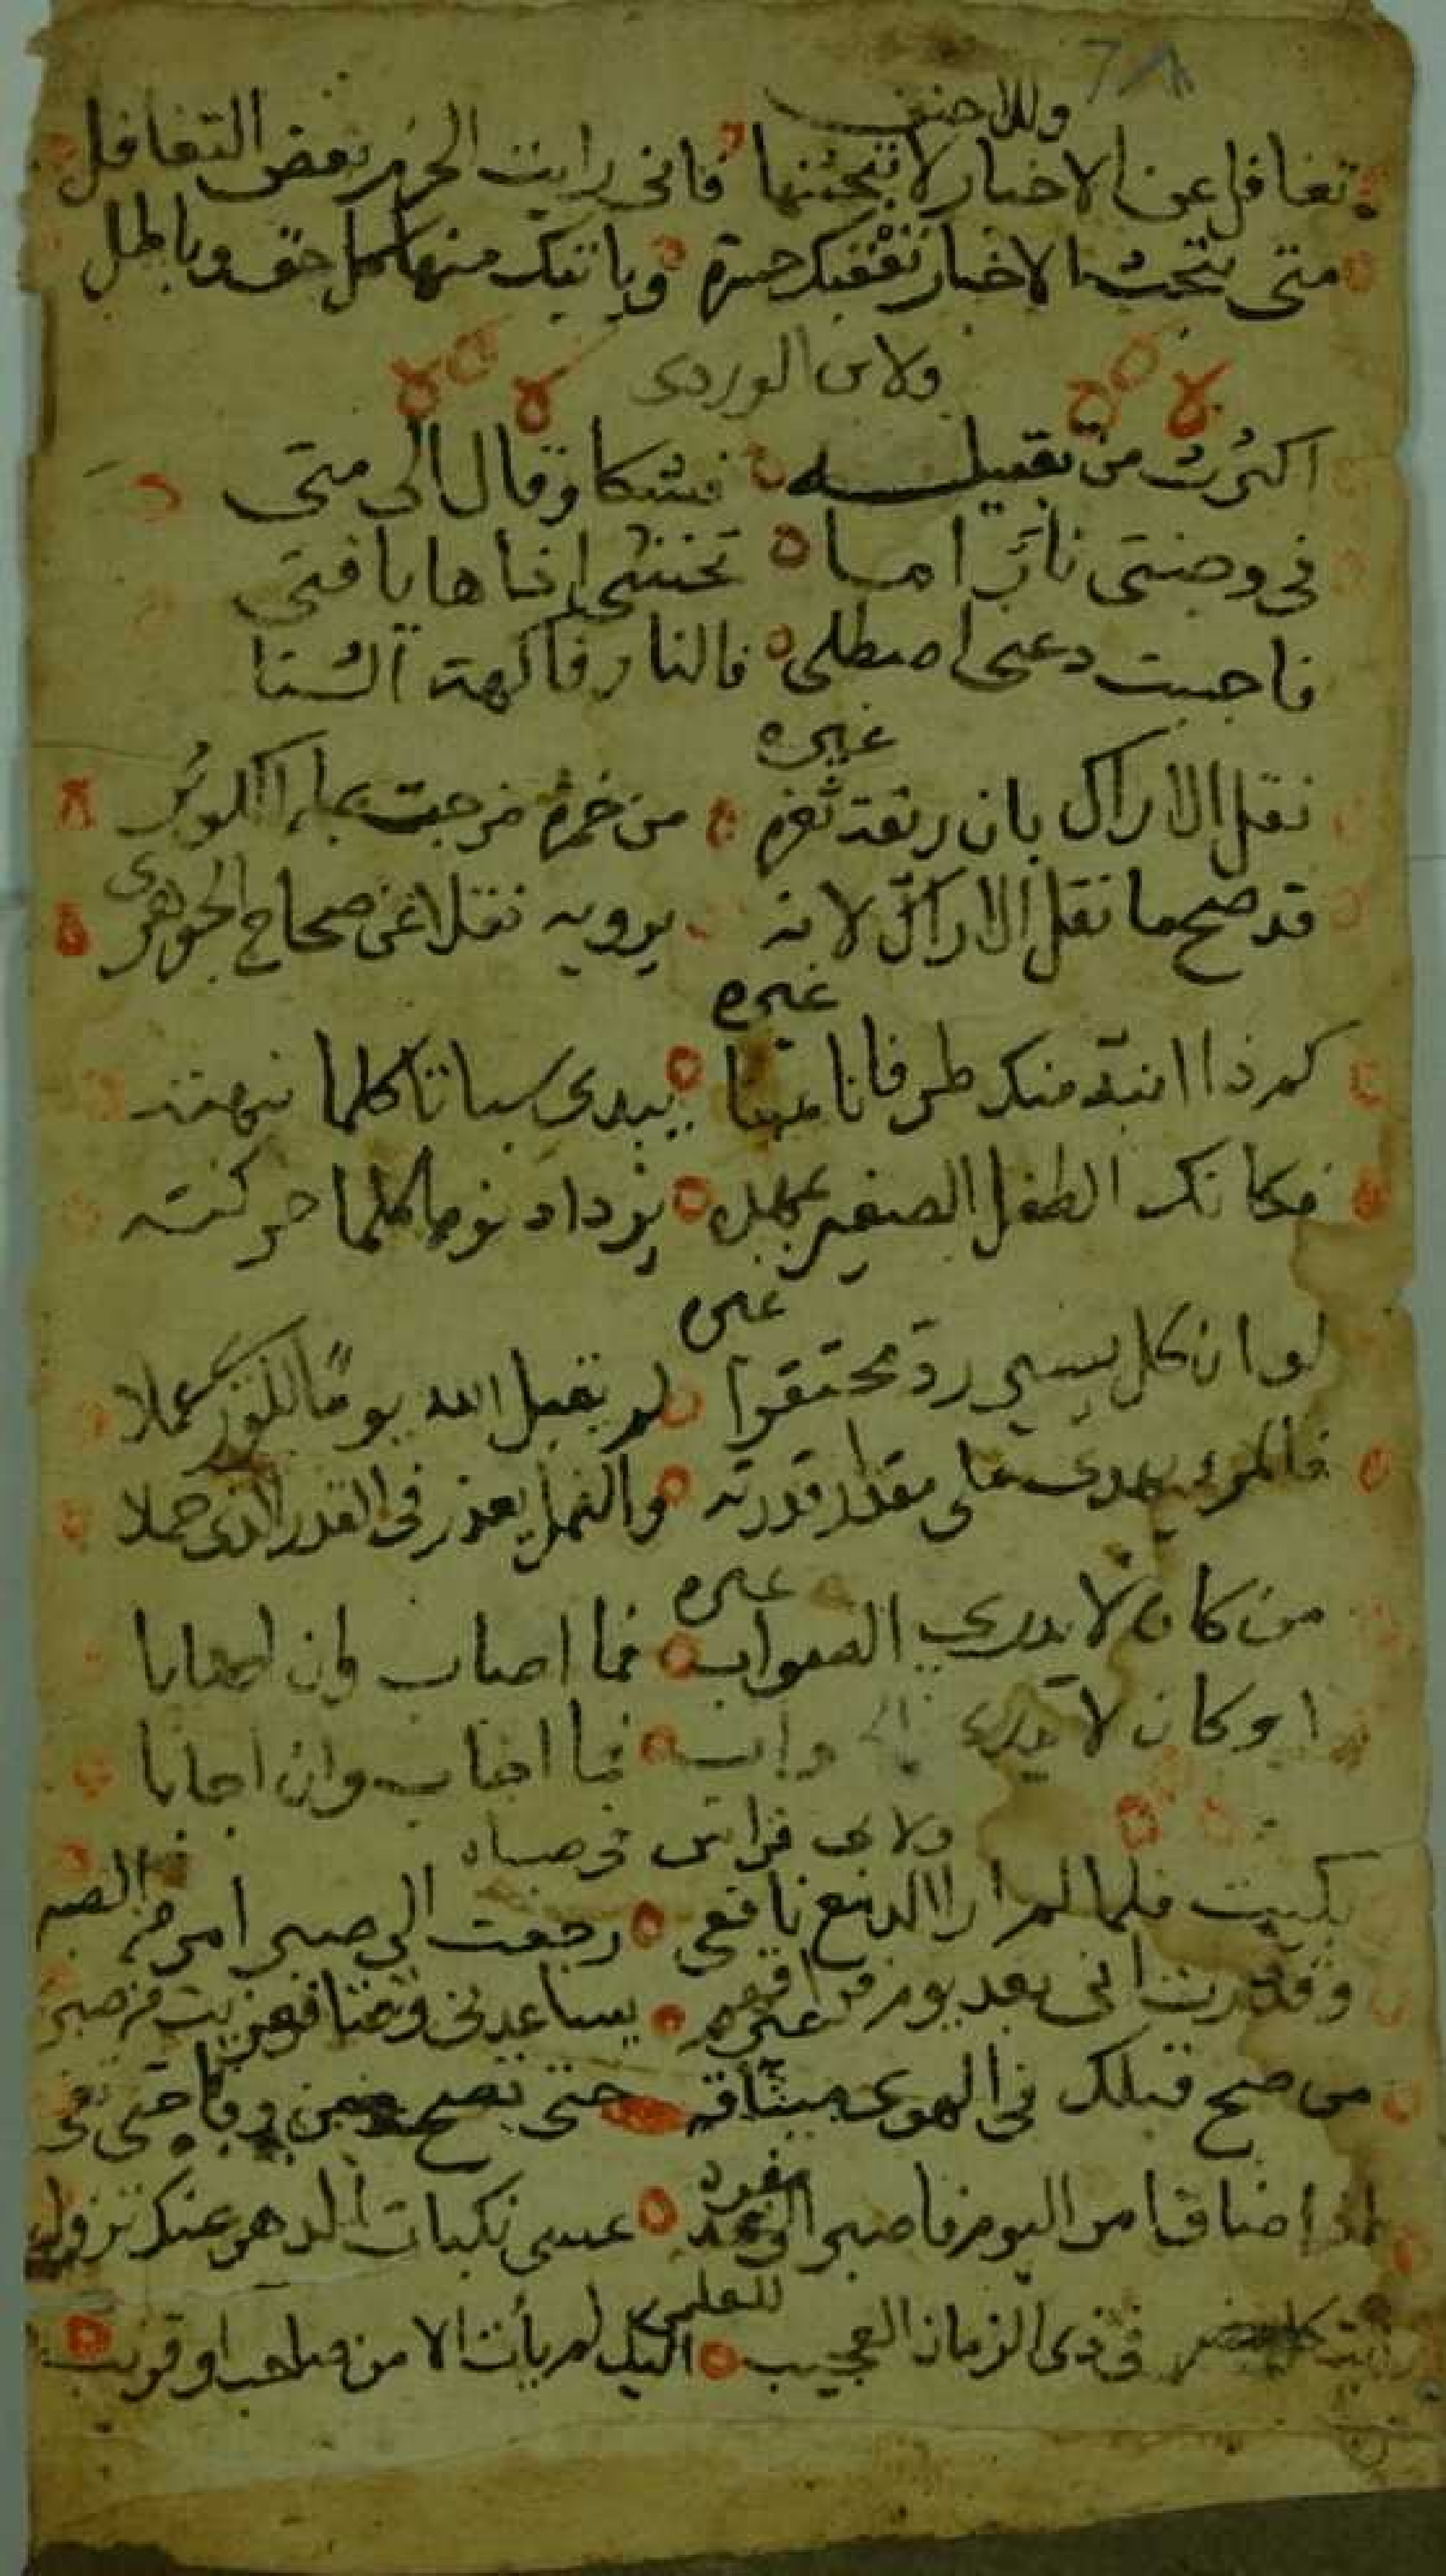 وللاحنف
تغافل عن الاخبار لا تبحثنها فانى رايت الحزم بعض التغافل
متى تبحث الاخبار تعقبك حسرة وياتيك منها كل حق وباطل
ولابن الوردى
اكثرت من تقبيله فشكا وقال الى متى
فى وجنتى نار اما تخشى اذاها يا فتى
فاجبت دعنى اصطلى فالنار فاكهة الشتا
غيره
نقل الاراك بان ريقة ثغره من خمرة مزجت بماء الكوثر
قد صح ما نقل الاراك لانه يرويه نقلا عن صحاح الجوهرى
غيره
كم ذا انبه منك طرفا نائما يبدى سباتا كلما نبهته
فكانك الطفل الصغير بمهده يزداد نوما كلما حركته
غيره
لو ان كل يسير رد محتقرا لم يقبل الله يوما للورى عملا
فالمرء يهدى على مقدار قدرته والنمل يعذر فى القدر الذى حملا
غيره
من كان لا يدرى الصواب فما اصاب وان اصابا
او كان لا يدرى واب فما اجاب وان اجابا
ولابى فراس فى صباه
بكيت فلما لم ار الدمع نافعى رجعت الى صبر امر من الصبر
وقدرت انى بعد يوم فراقهم يساعدنى وقتا فعزيت من صبرى
غيره
من صح قبلك فى الهوى ميثاقه حتى تصح ومن وفا حتى تفى
مفرد
اذا ضاق امر اليوم فاصبر الى غد عسى نكبات الدهر عنك تزول
للعلمى
فى ذى الزمان العجيب اليك لم يأت الا من صاحب او قريب